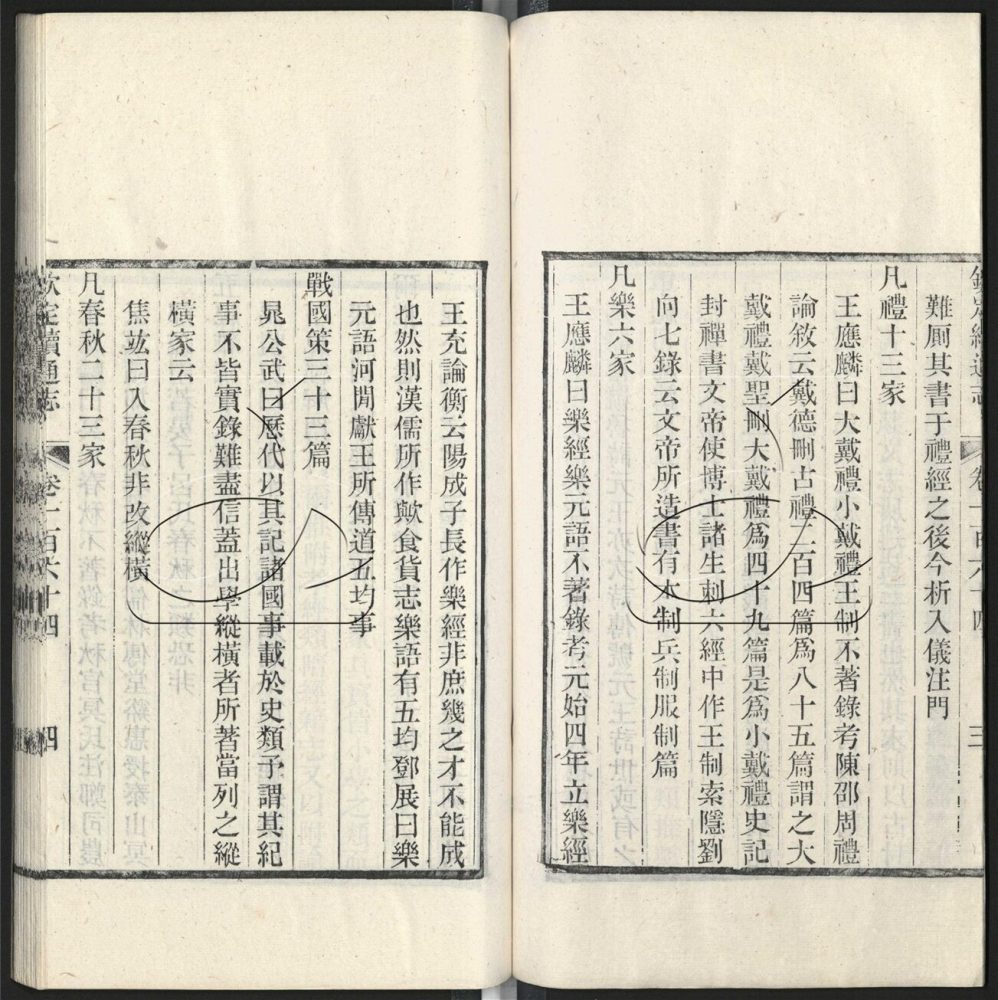 難厠其書于禮經之後今析入儀注門
凡禮十三家
王應麟曰大戴禮小戴禮王制不著錄考陳邵周禮
論敘云戴德刪古禮二百四篇爲八十五篇謂之大
戴禮戴聖刪大戴禮爲四十九篇是爲小戴禮史記
封禪書文帝使博士諸生刺六經中作王制索隱劉
向七錄云文帝所造書有本制兵制服制篇
凡樂六家
王應麟曰樂經樂元語不著錄考元始四年立樂經
王充論衡云陽成子長作樂經非庶幾之才不能成
也然則漢儒所作歟食貨志樂語有五均鄧展曰樂
元語河閒獻王所傳道五均事
戰國策三十三篇
晁公武曰歷代以其記諸國事載於史類予謂其紀
事不皆實錄難盡信蓋出學縱橫者所著當列之縱
橫家云
焦竑曰入春秋非改縱橫
凡春秋二十三家
欽定續通志
卷一百六十四
四